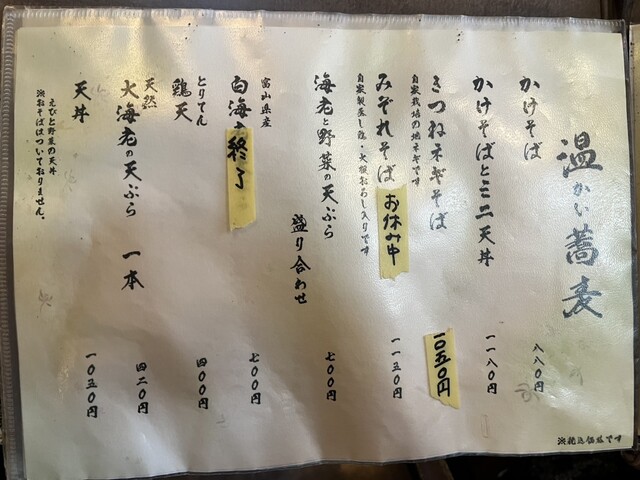 温かい蕎麦
かけそば
八八〇円
かけそばとミニ天丼
一一八〇円
きつねネギそば
自家栽培の地ネギです
一〇五〇円
みぞれそば
お休み中
自家製蒸し鶏・大根おろし入りです
一一五〇円
海老と野菜の天ぷら
盛り合わせ
七〇〇円
富山県産
白海
終了
七〇〇円
とりてん
鶏天
四〇〇円
天然
大海老の天ぷら 一本
四二〇円
天丼
えびと野菜の天丼
※おそばはついておりません。
一〇五〇円
※税込価格です